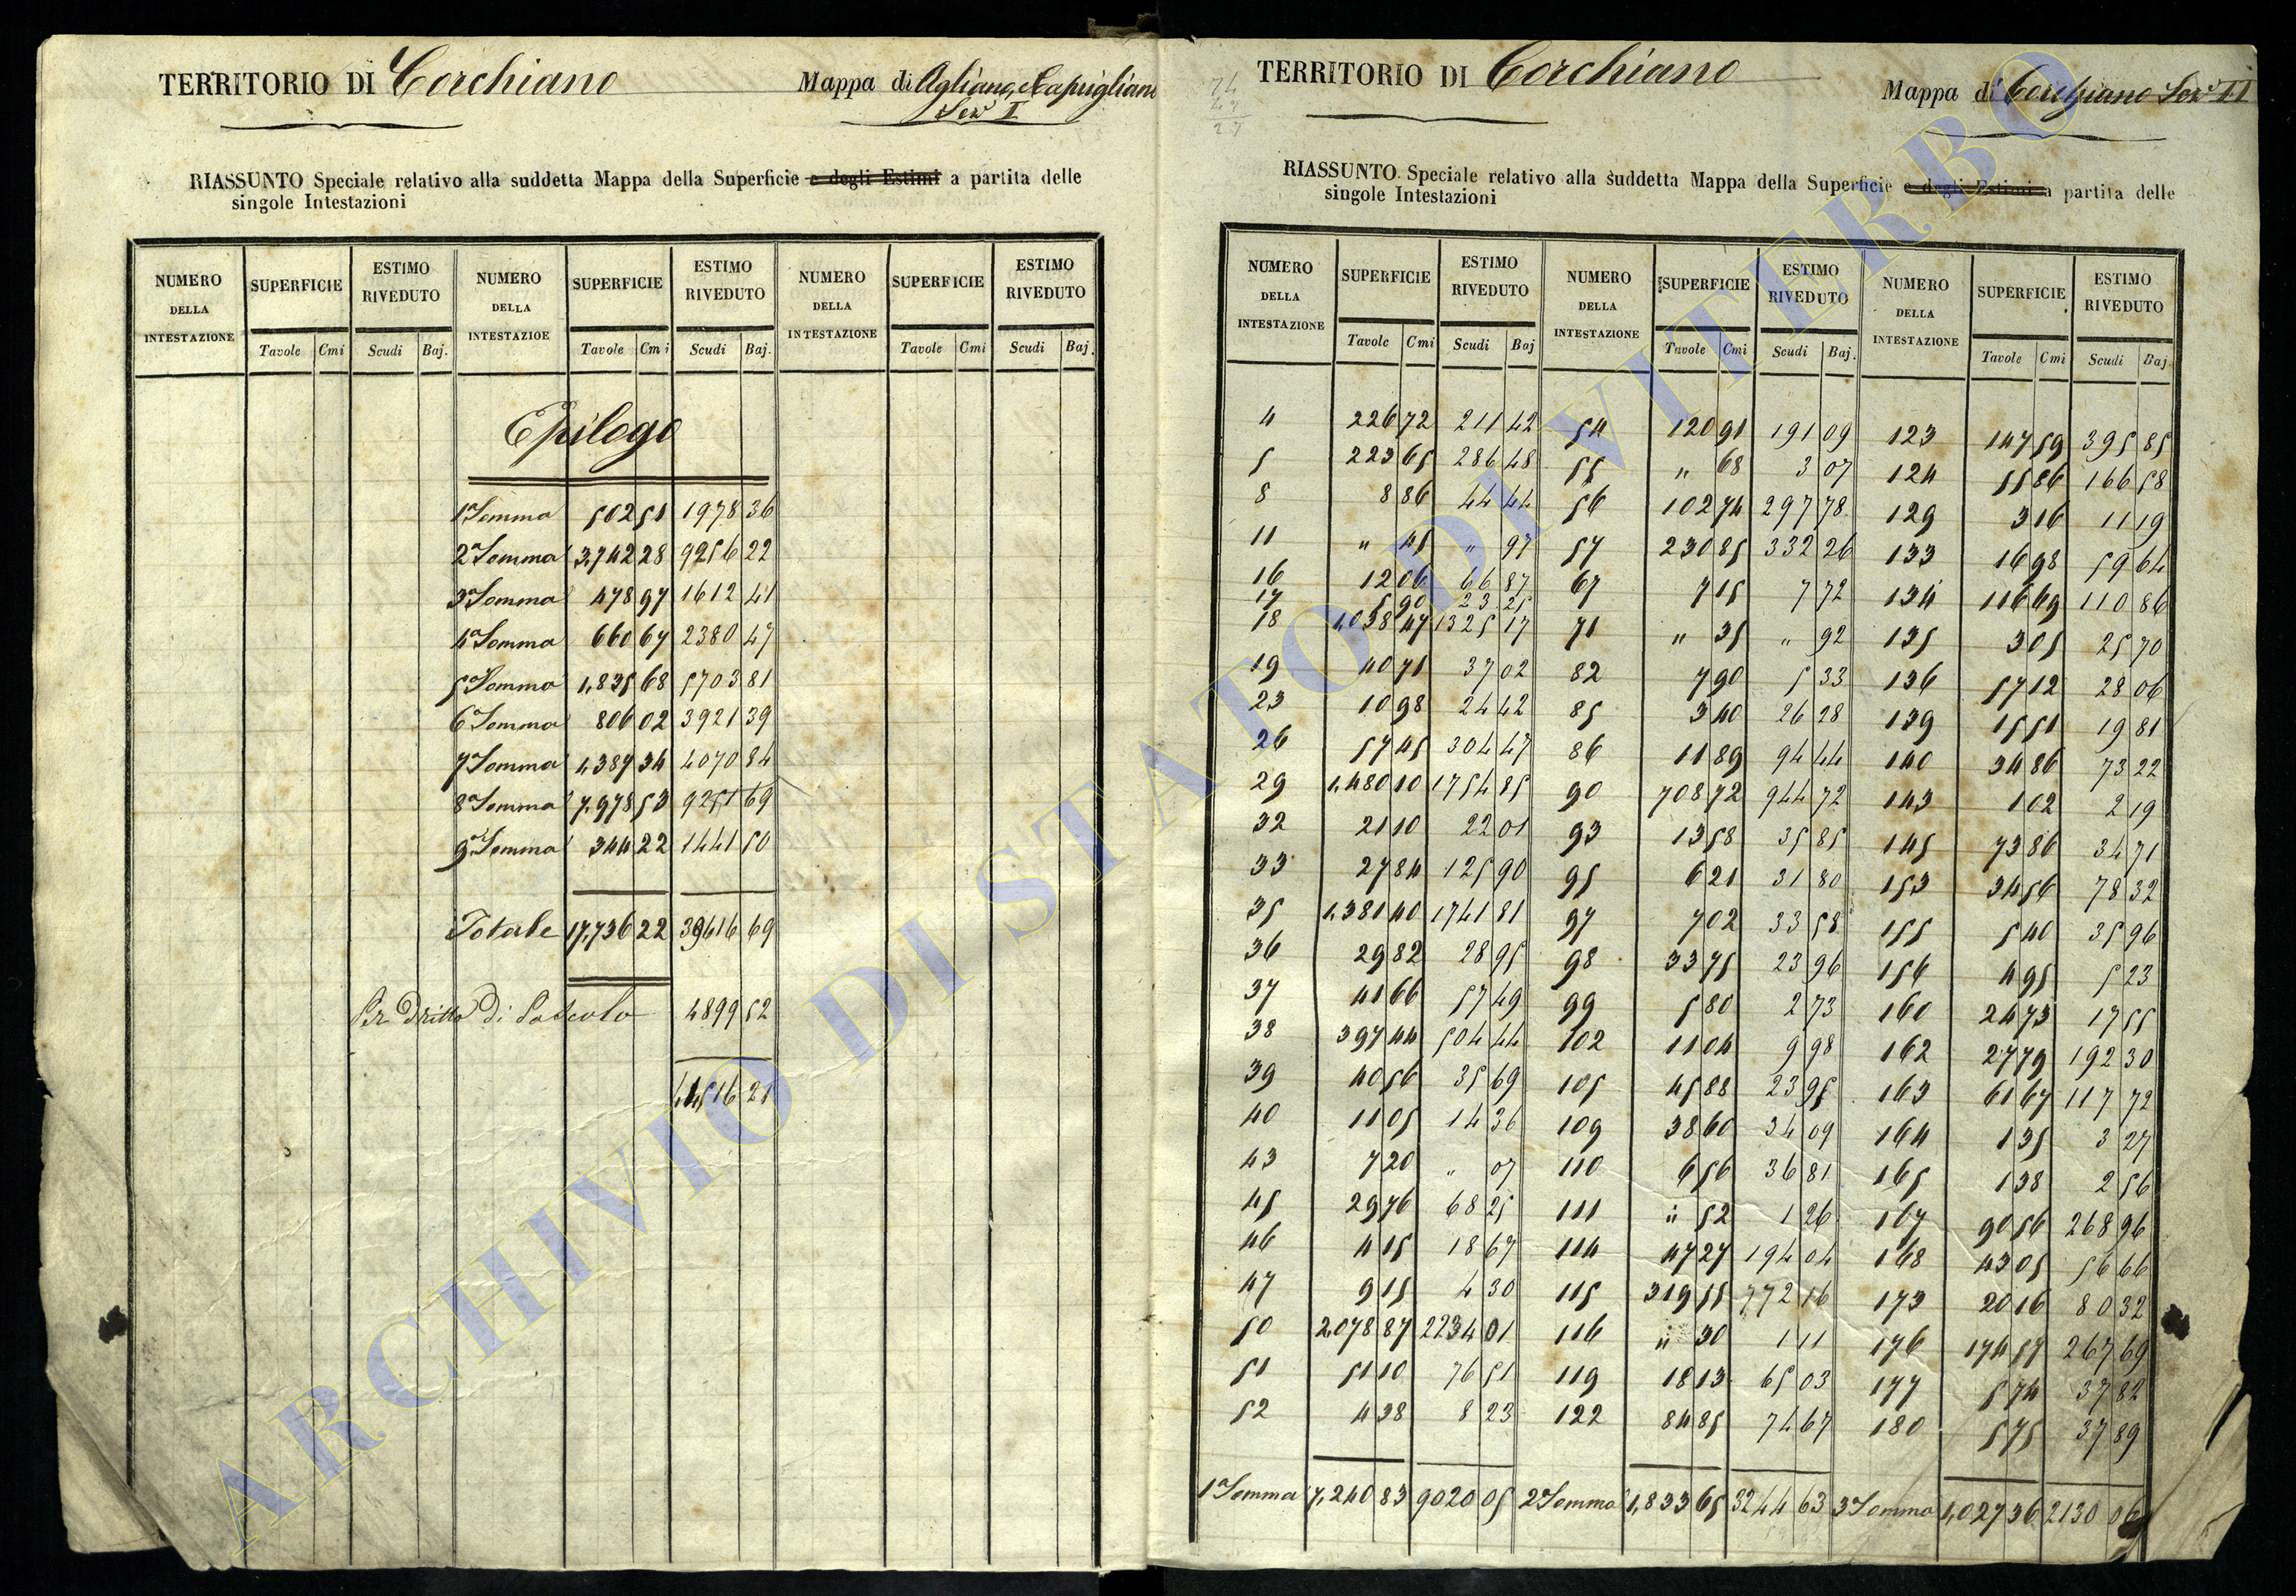 TERRITORIO DI Corchiano
Mappa di Agliano, e Caprigliano
Sez.e I
RIASSUNTO Speciale relativo alla suddetta Mappa della Superficie e degli Estimi a partita delle
singole Intestazioni
NUMERO DELLA INTESTAZIONE SUPERFICIE ESTIMO RIVEDUTO NUMERO DELLA INTESTAZIOE SUPERFICIE ESTIMO RIVEDUTO NUMERO DELLA INTESTAZIONE SUPERFICIE ESTIMO RIVEDUTO
Tavole Cmi Scudi Baj. Tavole Cmi Scudi Baj. Tavole Cmi Scudi Baj.
Epilogo
1a Somma 502 51 1978 36
2a Somma 3,742 28 9256 22
3a Somma 478 97 1612 41
4a Somma 660 67 2380 47
5a Somma 1,835 68 5703 81
6a Somma 806 02 3921 39
7a Somma 1,387 34 4070 84
8a Somma 7,978 53 9251 69
9a Somma 344 22 1441 50
Totale 17,736 22 39616 69
Per dritto di Pascolo 4899 52
44516 21
TERRITORIO DI Corchiano
Mappa di Corchiano Sez.e II
RIASSUNTO Speciale relativo alla suddetta Mappa della Superficie e degli Estimi a partita delle
singole Intestazioni
NUMERO DELLA INTESTAZIONE SUPERFICIE ESTIMO RIVEDUTO NUMERO DELLA INTESTAZIONE SUPERFICIE ESTIMO RIVEDUTO NUMERO DELLA INTESTAZIONE SUPERFICIE ESTIMO RIVEDUTO
Tavole Cmi Scudi Baj Tavole Cmi Scudi Baj. Tavole Cmi Scudi Baj
4 226 72 211 42 54 120 91 191 09 123 147 59 395 85
5 223 65 286 48 55 " 68 3 07 124 55 86 166 58
8 8 86 44 44 56 102 74 297 78 129 3 16 11 19
11 " 45 " 97 57 230 85 332 26 133 16 98 59 64
16 12 06 66 87 67 7 15 7 72 134 116 49 110 86
17 5 90 23 25 71 " 35 " 92 135 3 05 25 70
18 1,038 47 1325 17 82 7 90 5 33 136 57 12 28 06
19 40 71 37 02 85 3 40 26 28 139 15 51 19 81
23 10 98 24 42 86 11 89 94 44 140 34 86 73 22
26 57 45 304 47 90 708 72 944 72 143 1 02 2 19
29 1,480 10 1754 85 93 13 58 35 85 145 73 86 34 71
32 21 10 22 01 95 6 21 31 80 153 34 56 78 32
33 27 84 125 90 97 7 02 33 58 155 5 40 35 96
35 1,381 40 1741 81 98 33 75 23 96 156 4 95 5 23
36 29 82 28 95 99 5 80 2 73 160 24 73 17 55
37 41 66 57 49 102 11 04 9 98 162 27 79 192 30
38 397 44 504 44 105 45 88 23 95 163 61 67 117 72
39 40 56 35 69 109 38 60 34 09 164 1 35 3 27
40 11 05 14 36 110 6 56 36 81 165 1 38 2 56
43 7 20 " 07 111 " 52 1 26 167 90 56 268 96
45 29 76 68 25 114 47 27 194 04 168 43 05 56 66
46 4 15 18 67 115 319 55 772 16 173 20 16 80 32
47 9 15 4 30 116 " 30 1 11 176 174 57 267 69
50 2,078 87 2234 01 119 18 13 65 03 177 5 74 37 82
51 51 10 76 51 122 84 85 74 67 180 5 75 37 89
52 4 38 8 23
1a Somma 7,240 83 9020 05 2a Somma 1,833 65 3244 63 3a Somma 1,027 36 2130 06
ARCHIVIO DI STATO DI VITERBO